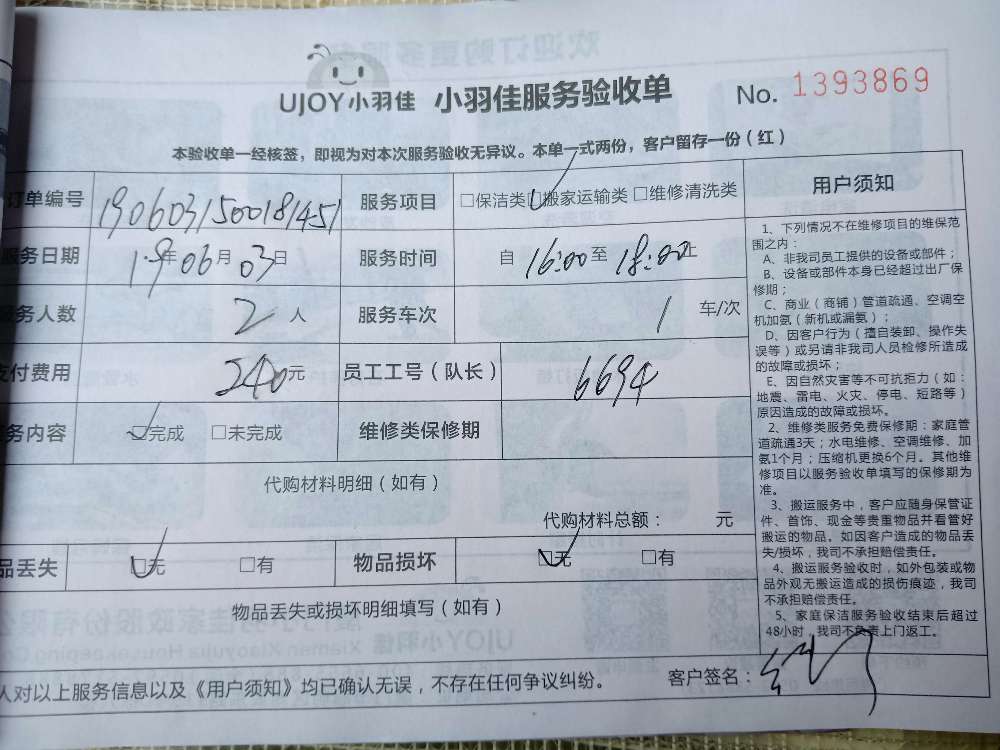 UJOY小羽佳 小羽佳服务验收单 No. 1393869
本验收单一经核签，即视为对本次服务验收无异议。本单一式两份，客户留存一份（红）
订单编号 1906031500181451 服务项目 □保洁类 □搬家运输类 □维修清洗类
服务日期 19年06月03日 服务时间 自 16:00 至 18:00 止
服务人数 2 人 服务车次 1 车/次
支付费用 240元 员工工号（队长） 6694
务内容 □完成 □未完成 维修类保修期
代购材料明细（如有）
代购材料总额： 元
品丢失 □无 □有 物品损坏 □无 □有
物品丢失或损坏明细填写（如有）
人对以上服务信息以及《用户须知》均已确认无误，不存在任何争议纠纷。 客户签名：
用户须知
1、下列情况不在维修项目的维保范
围之内：
A、非我司员工提供的设备或部件；
B、设备或部件本身已经超过出厂保
修期；
C、商业（商铺）管道疏通、空调空
机加氨（新机或漏氨）；
D、因客户行为（擅自装卸、操作失
误等）或另请非我司人员检修所造成
的故障或损坏；
E、因自然灾害等不可抗拒力（如：
地震、雷电、火灾、停电、短路等）
原因造成的故障或损坏。
2、维修类服务免费保修期：家庭管
道疏通3天；水电维修、空调维修、加
氨1个月；压缩机更换6个月。其他维
修项目以服务验收单填写的保修期为
准。
3、搬运服务中，客户应随身保管证
件、首饰、现金等贵重物品并看管好
搬运的物品。如因客户造成的物品丢
失/损坏，我司不承担赔偿责任。
4、搬运服务验收时，如外包装或物
品外观无搬运造成的损伤痕迹，我司
不承担赔偿责任。
5、家庭保洁服务验收结束后超过
48小时，我司不负责上门返工。